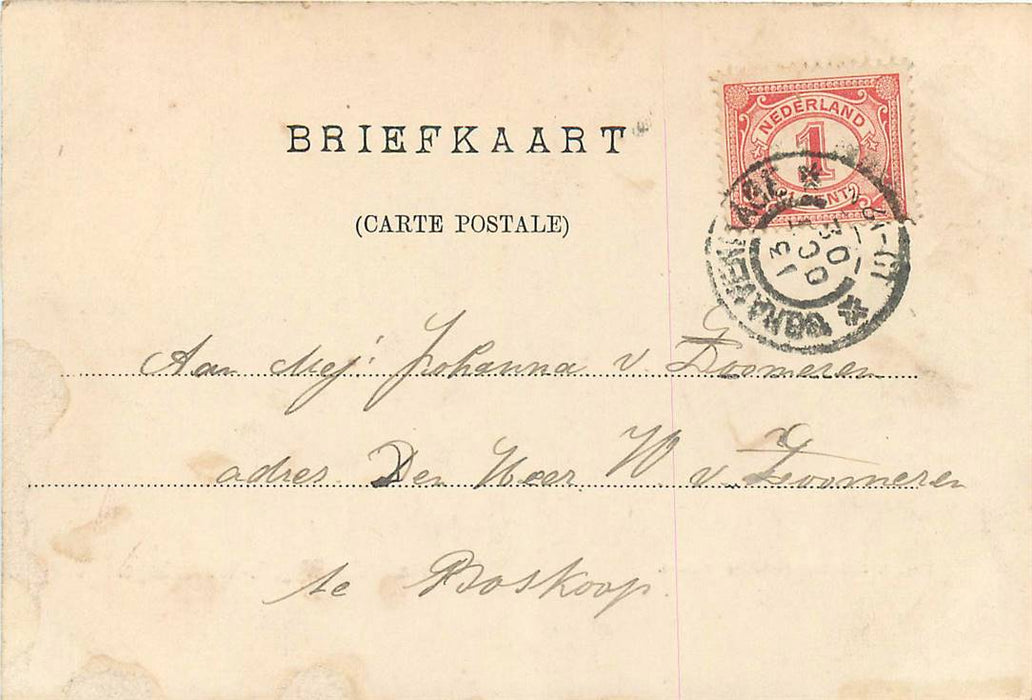 BRIEFKAART
(CARTE POSTALE)
NEDERLAND
1
CENT
'S GRAVENHAGE
Aan Mej: Johanna v. Doomeren
adres. Den Heer W. v. Zoomeren
te Boskoop.